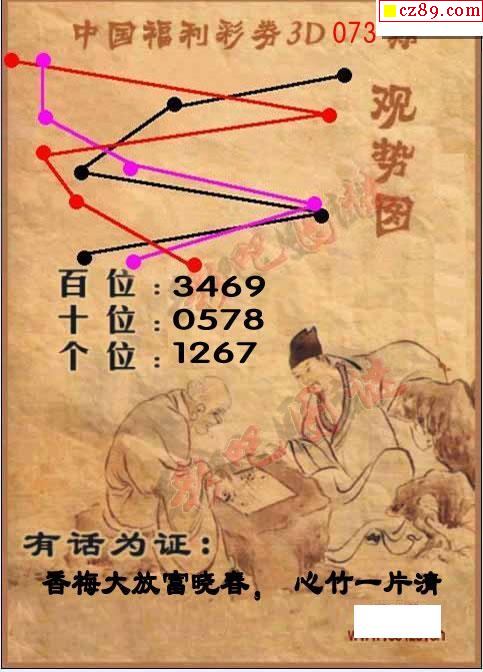 cz89.com
中国福利彩券3D 073
观势图
百位：3469
十位：0578
个位：1267
彩吧图谜
彩吧图谜
有话为证：
香梅大放富晓春， 心竹一片清